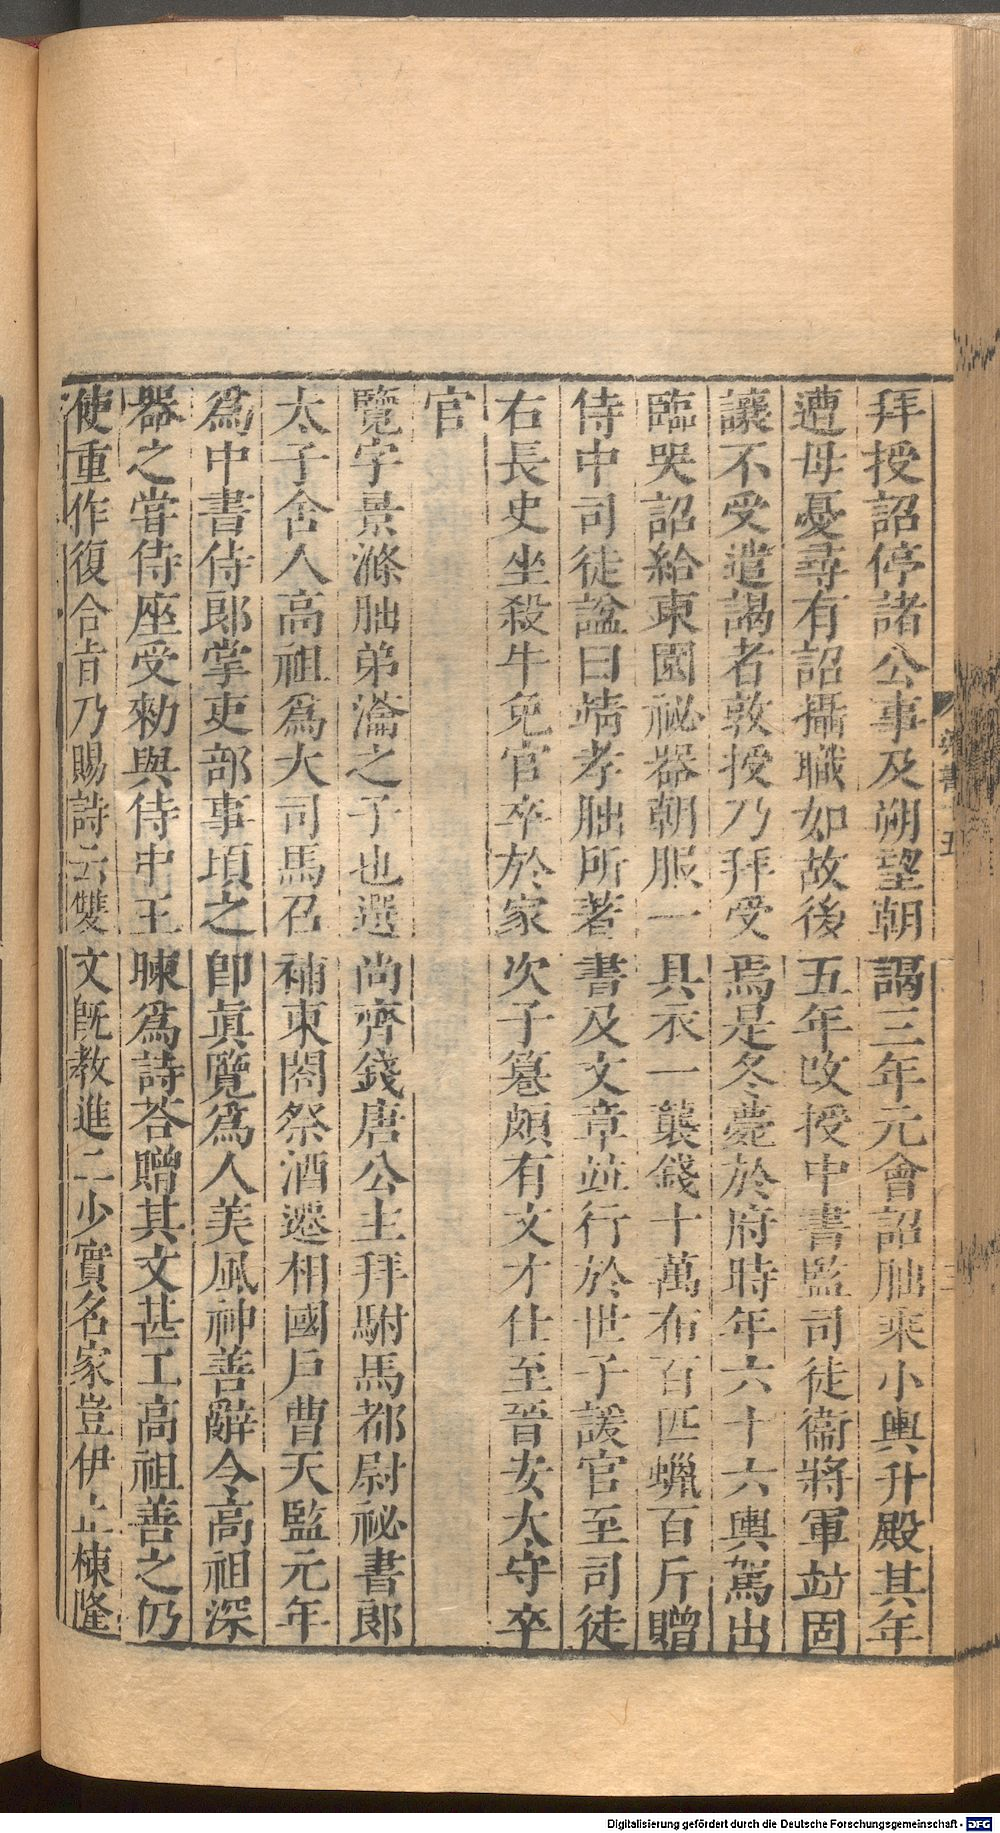 拜授詔停諸公事及朔望朝謁三年元會詔朏乘小輿升殿其年
遭母憂尋有詔攝職如故後五年改授中書監司徒衞將軍竝固
讓不受遣謁者敦授乃拜受焉是冬薨於府時年六十六輿駕出
臨哭詔給東園祕器朝服一具衣一襲錢十萬布百匹蠟百斤贈
侍中司徒諡曰靖孝朏所著書及文章竝行於世子諼官至司徒
右長史坐殺牛免官卒於家次子篹頗有文才仕至晉安太守卒
官
覽字景滌朏弟瀹之子也選尚齊錢唐公主拜駙馬都尉祕書郎
太子舍人高祖爲大司馬召補東閤祭酒遷相國戸曹天監元年
爲中書侍郎掌吏部事頃之卽眞覽爲人美風神善辭令高祖深
器之嘗侍座受勑與侍中王暕爲詩荅贈其文甚工高祖善之仍
使重作復合旨乃賜詩云雙文旣敎進二少實名家豈伊止棟隆
梁書十五
Digitalisierung gefördert durch die Deutsche Forschungsgemeinschaft - DFG